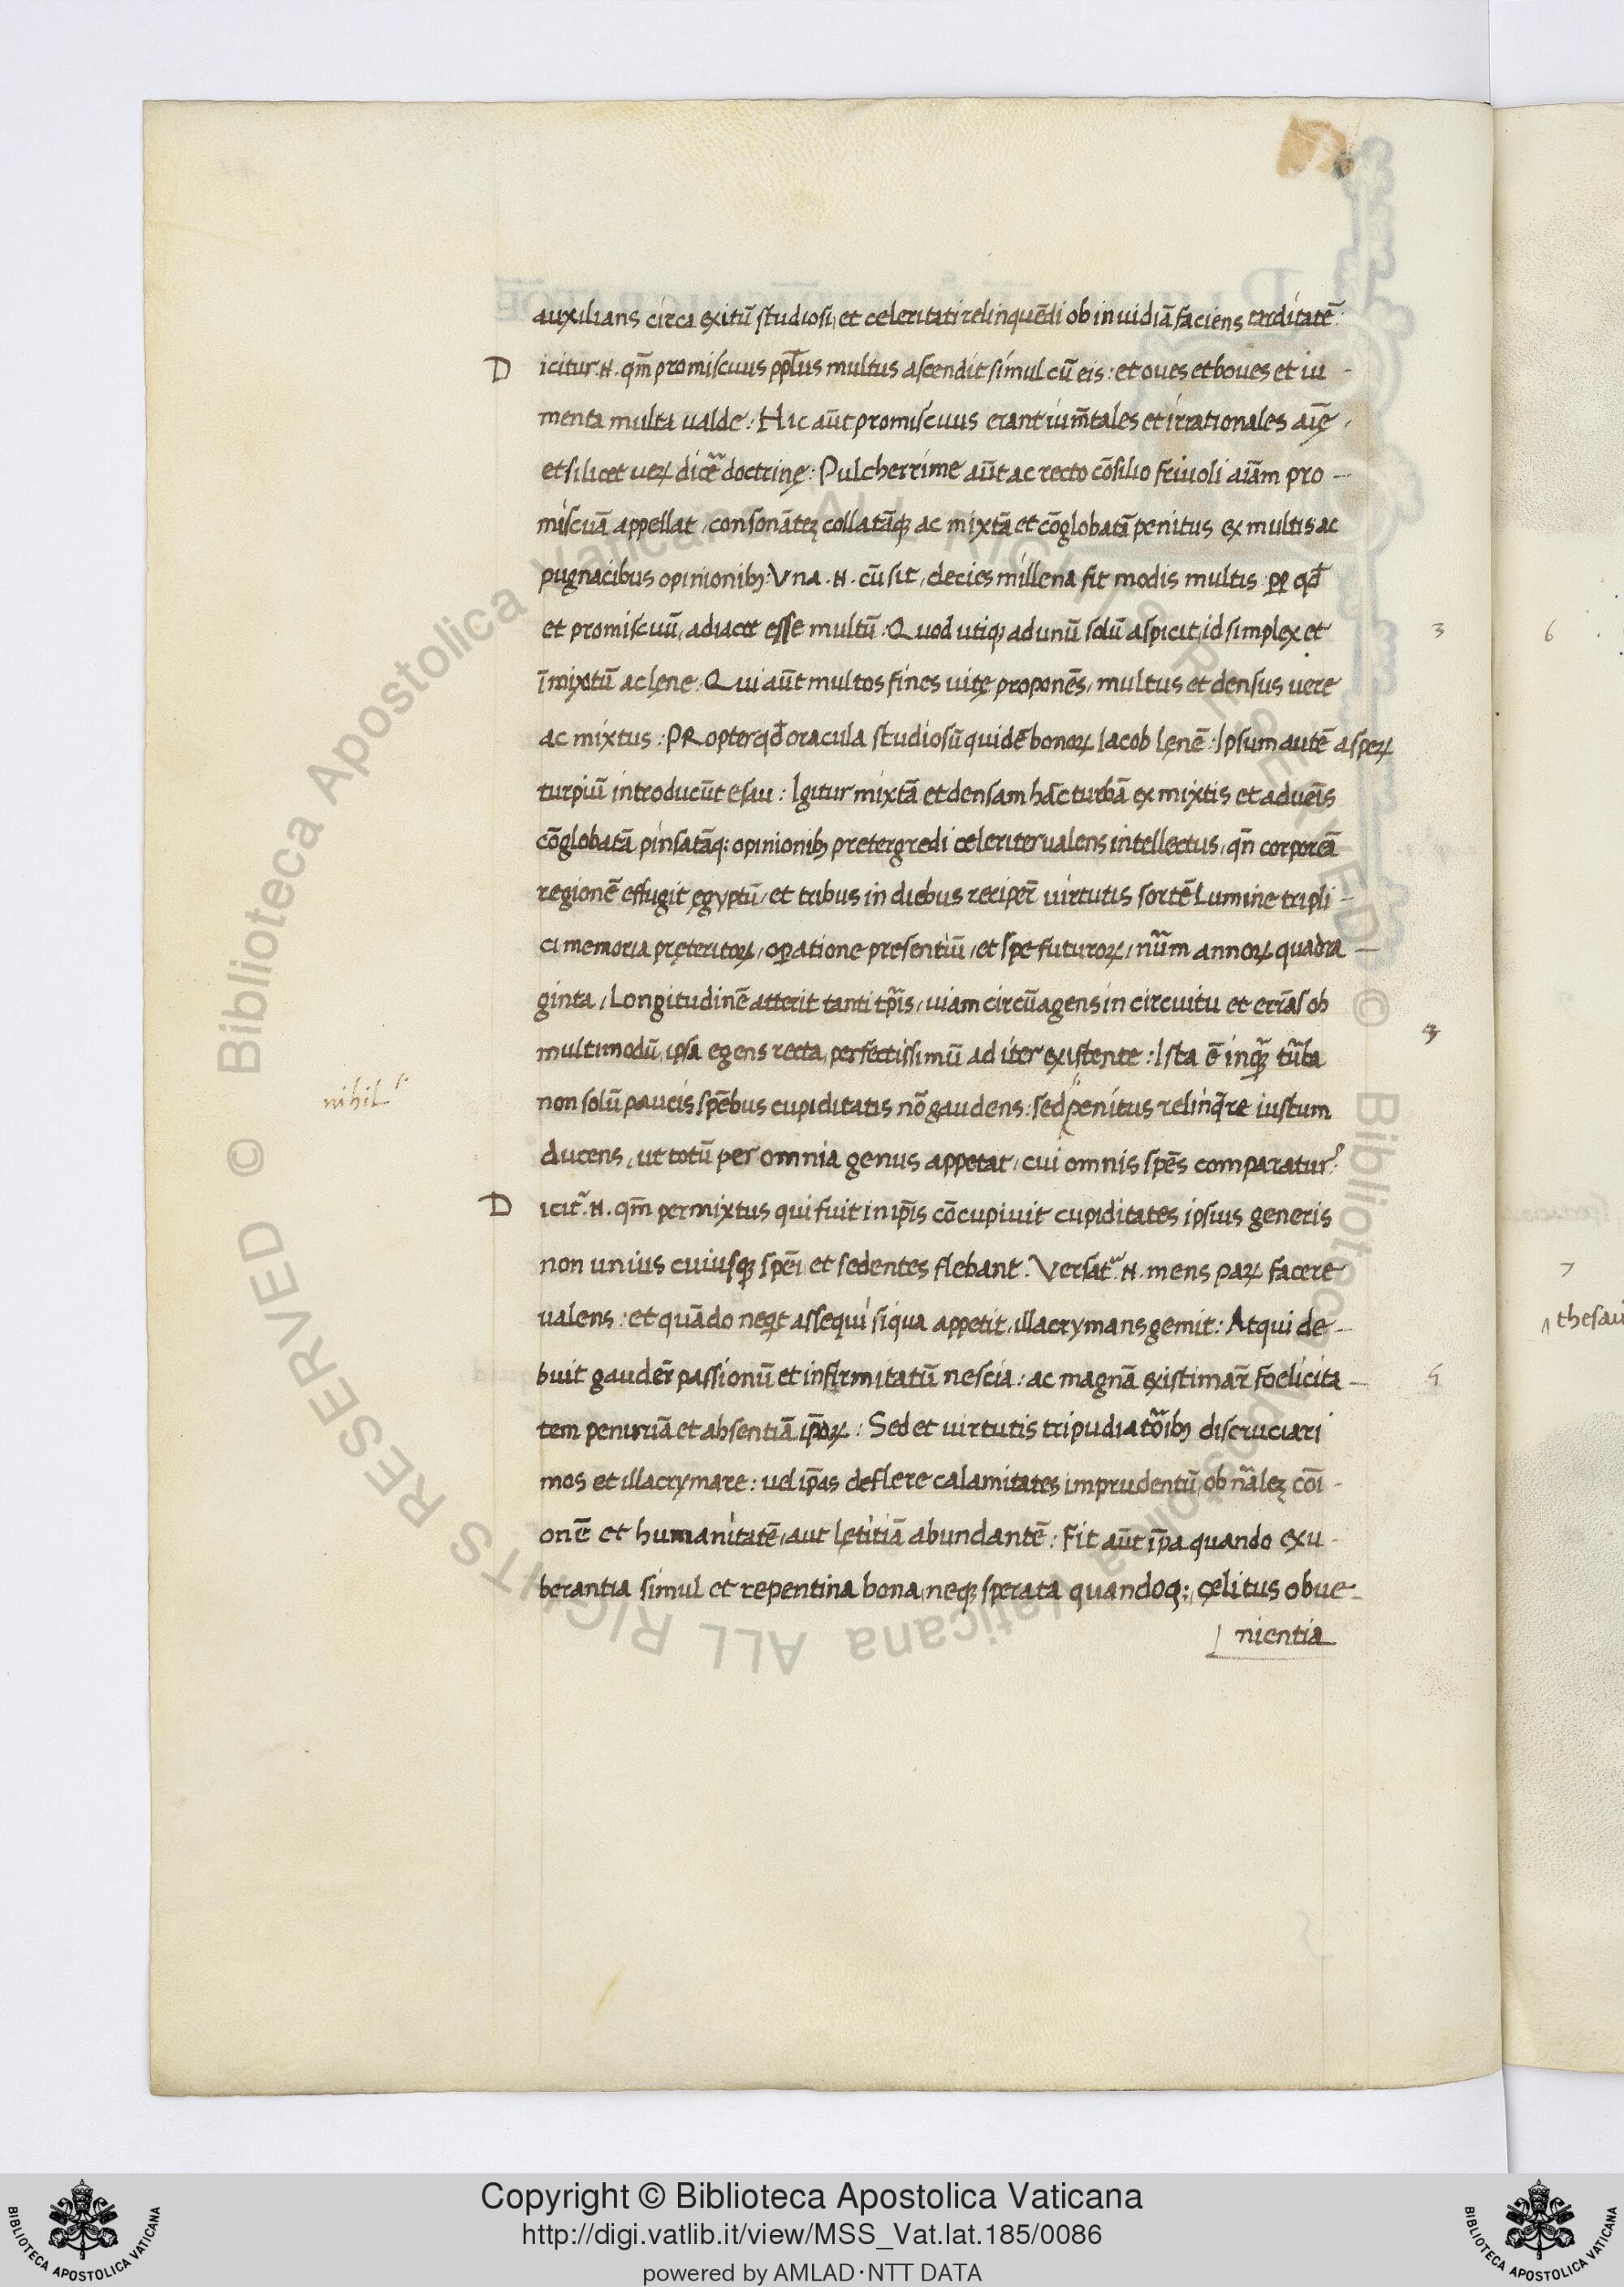 auxilians circa exitū studiosi, et celeritati relinquēdi ob inuidiā faciens tarditatē:
D icitur .N. qm̄ promiscuus ppl̄us multus ascendit simul cū eis: et oues et boues et iu-
menta multa ualde: Hic aūt promiscuus erant ium̄tales et irrationales aīę,
et si licet ueꝝ dicẽ doctrinę: Pulcherrime aūt ac recto cōsilio friuoli aīam pro-
miscuā appellat, consonātēꝫ collatāqꝫ ac mixtā et cōglobatā penitus ex multis ac
pugnacibus opinionibꝫ: Vna .N. cū sit, decies millena fit modis multis. ꝓp qđ
et promiscuū, adiacet esse multū: Quod utiqꝫ ad unū solū aspicit, id simplex et
īmixtū ac lęne: Qui aūt multos fines uitę proponēs, multus et densus uere
ac mixtus: PRopter qđ oracula studiosū quidē bonoꝝ Iacob lęnē: Ipsum autē aspeꝝ
turpiū introducūt esau: Igitur mixtā et densam hāc turbā ex mixtis et aduēis
cōglobatā pinsatāqꝫ: opinionibꝫ pretergredi celeriter ualens intellectus, qn̄ corporeā
regionē effugit ęgyptū, et tribus in diebus reciper̄ uirtutis sortē Lumine tripli-
ci memoria pręteritoꝝ, oꝑatione presentiū, et spe futuroꝝ, nūm annoꝝ quadra-
ginta, Longitudinē atterit tanti tp̄is, uiam circūagens in circuitu et errās ob
multimodū, ipsa egens recta, perfectissimū ad iter existente: Ista ē inqꝫ tũba
non solū paucis spēbus cupiditatis nō gaudens: sed penitus relinq̄re iustum
nihil
ducens, ut totū per omnia genus appetat, cui omnis spēs comparatur:
D icit̃ .N. qm̄ permixtus qui fuit in ip̄is cōcupiuit cupiditates ipsius generis
non unius cuiusqꝫ spēi, et sedentes flebant. Versat̃ .N. mens paꝝ facere
ualens: et quādo neqt̄ assequi si qua appetit, illacrymans gemit: Atqui de-
buit gauder̄ passionū et infirmitatū nescia: ac magnā existimar̄ foelicita-
tem penuriā et absentiā ip̄oꝝ: Sed et uirtutis tripudiatōibꝫ discruciari
mos et illacrymare: uel ip̄as deflere calamitates imprudentū, ob nr̄alēꝫ cōi-
onē et humanitatē, aut lętitiā abundantē: Fit aūt ip̄a quando exu-
berantia simul et repentina bona, neqꝫ sperata quandoqꝫ; cęlitus obue-
nientia
3
3
5
6
7
thesau
Copyright © Biblioteca Apostolica Vaticana
http://digi.vatlib.it/view/MSS_Vat.lat.185/0086
powered by AMLAD·NTT DATA
BIBLIOTECA APOSTOLICA VATICANA
BIBLIOTECA APOSTOLICA VATICANA
© Biblioteca Apostolica Vaticana ALL RIGHTS RESERVED © Biblioteca Apostolica Vaticana ALL RIGHTS RESERVED